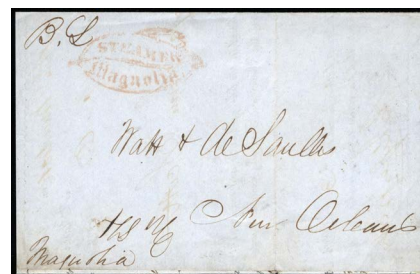 B. L
STEAMER
Magnolia
Watt & de Saulles
New Orleans
Magnolia